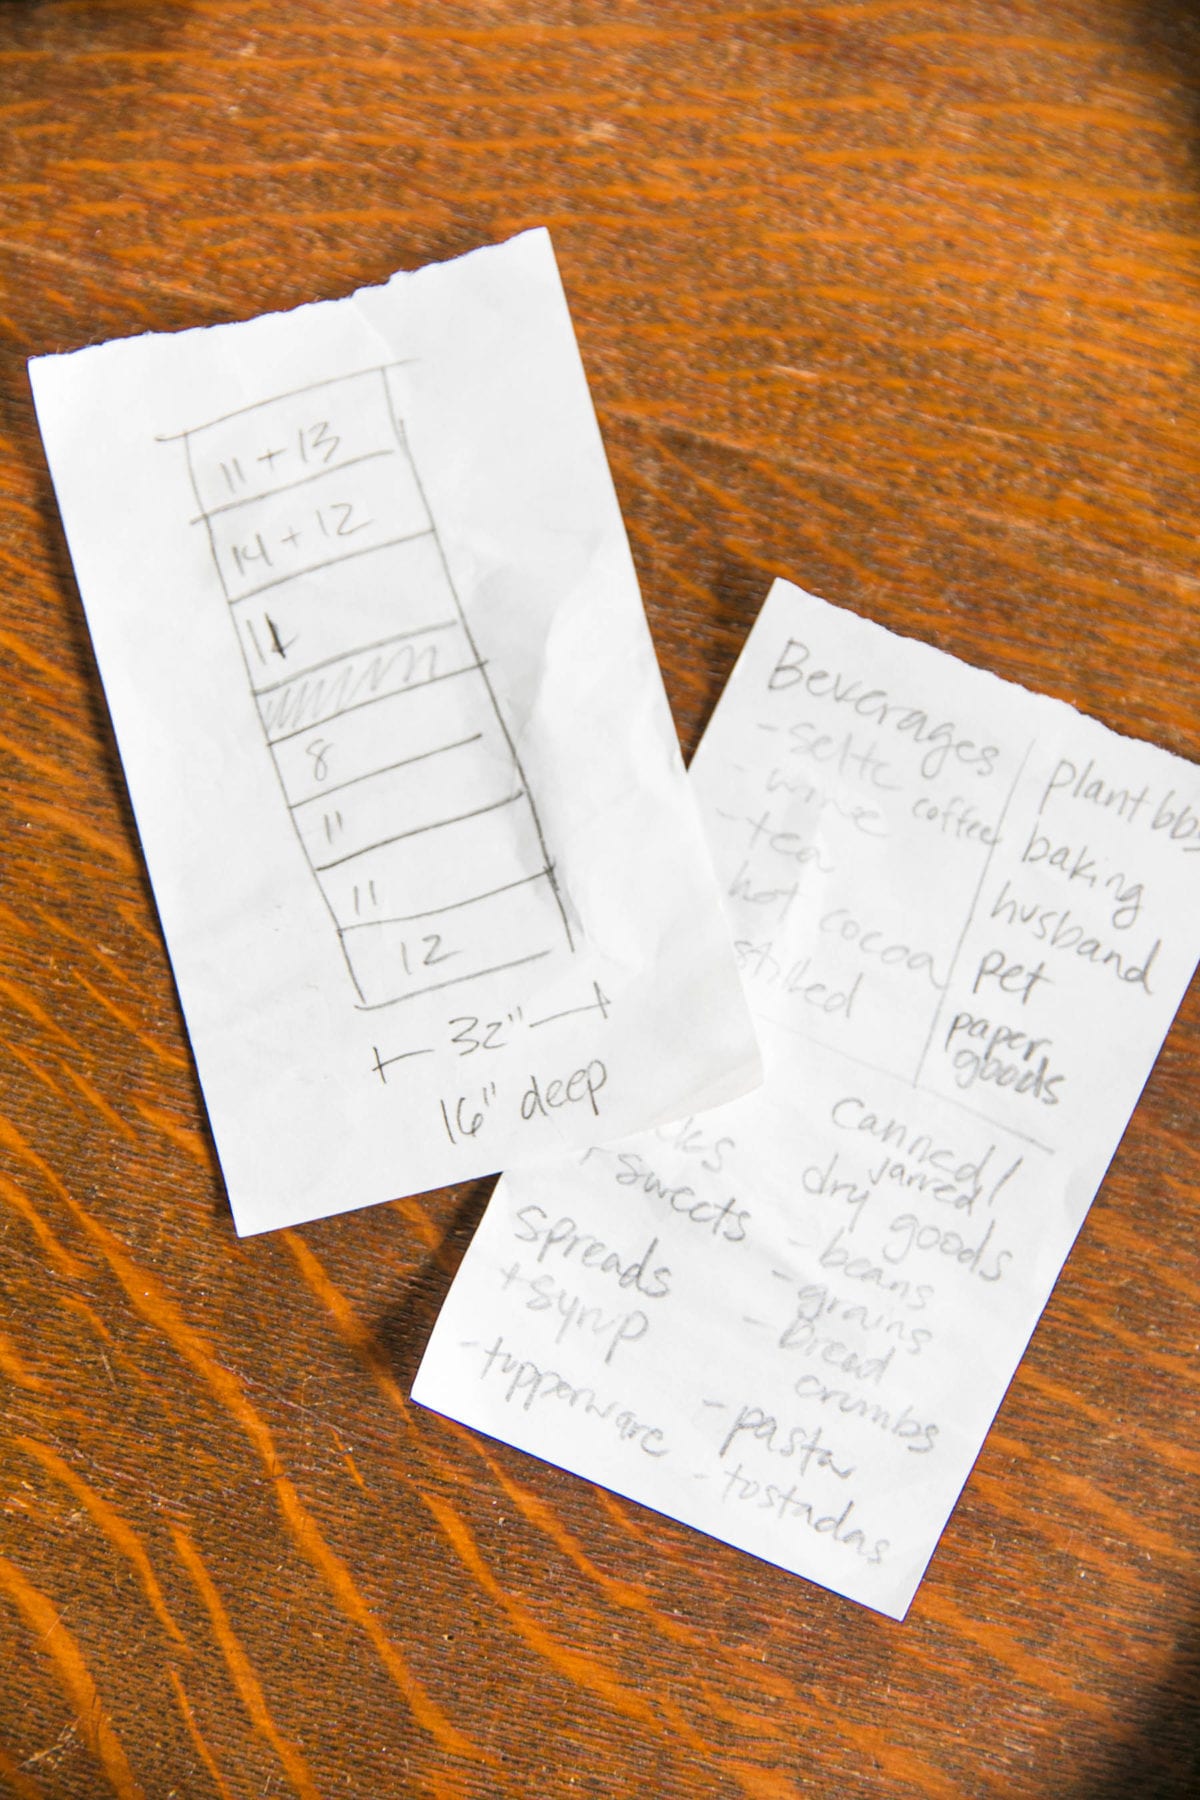 11 + 13
14 + 12
11
8
11
11
12
32"
16" deep
Beverages
-
- wine coffee
- tea
hot cocoa
plant bbs
baking
husband
pet
paper
goods
+ sweets
spreads
+ syrup
- tupperware
canned/
jarred
dry goods
- beans
- grains
- bread
crumbs
- pasta
- tostadas